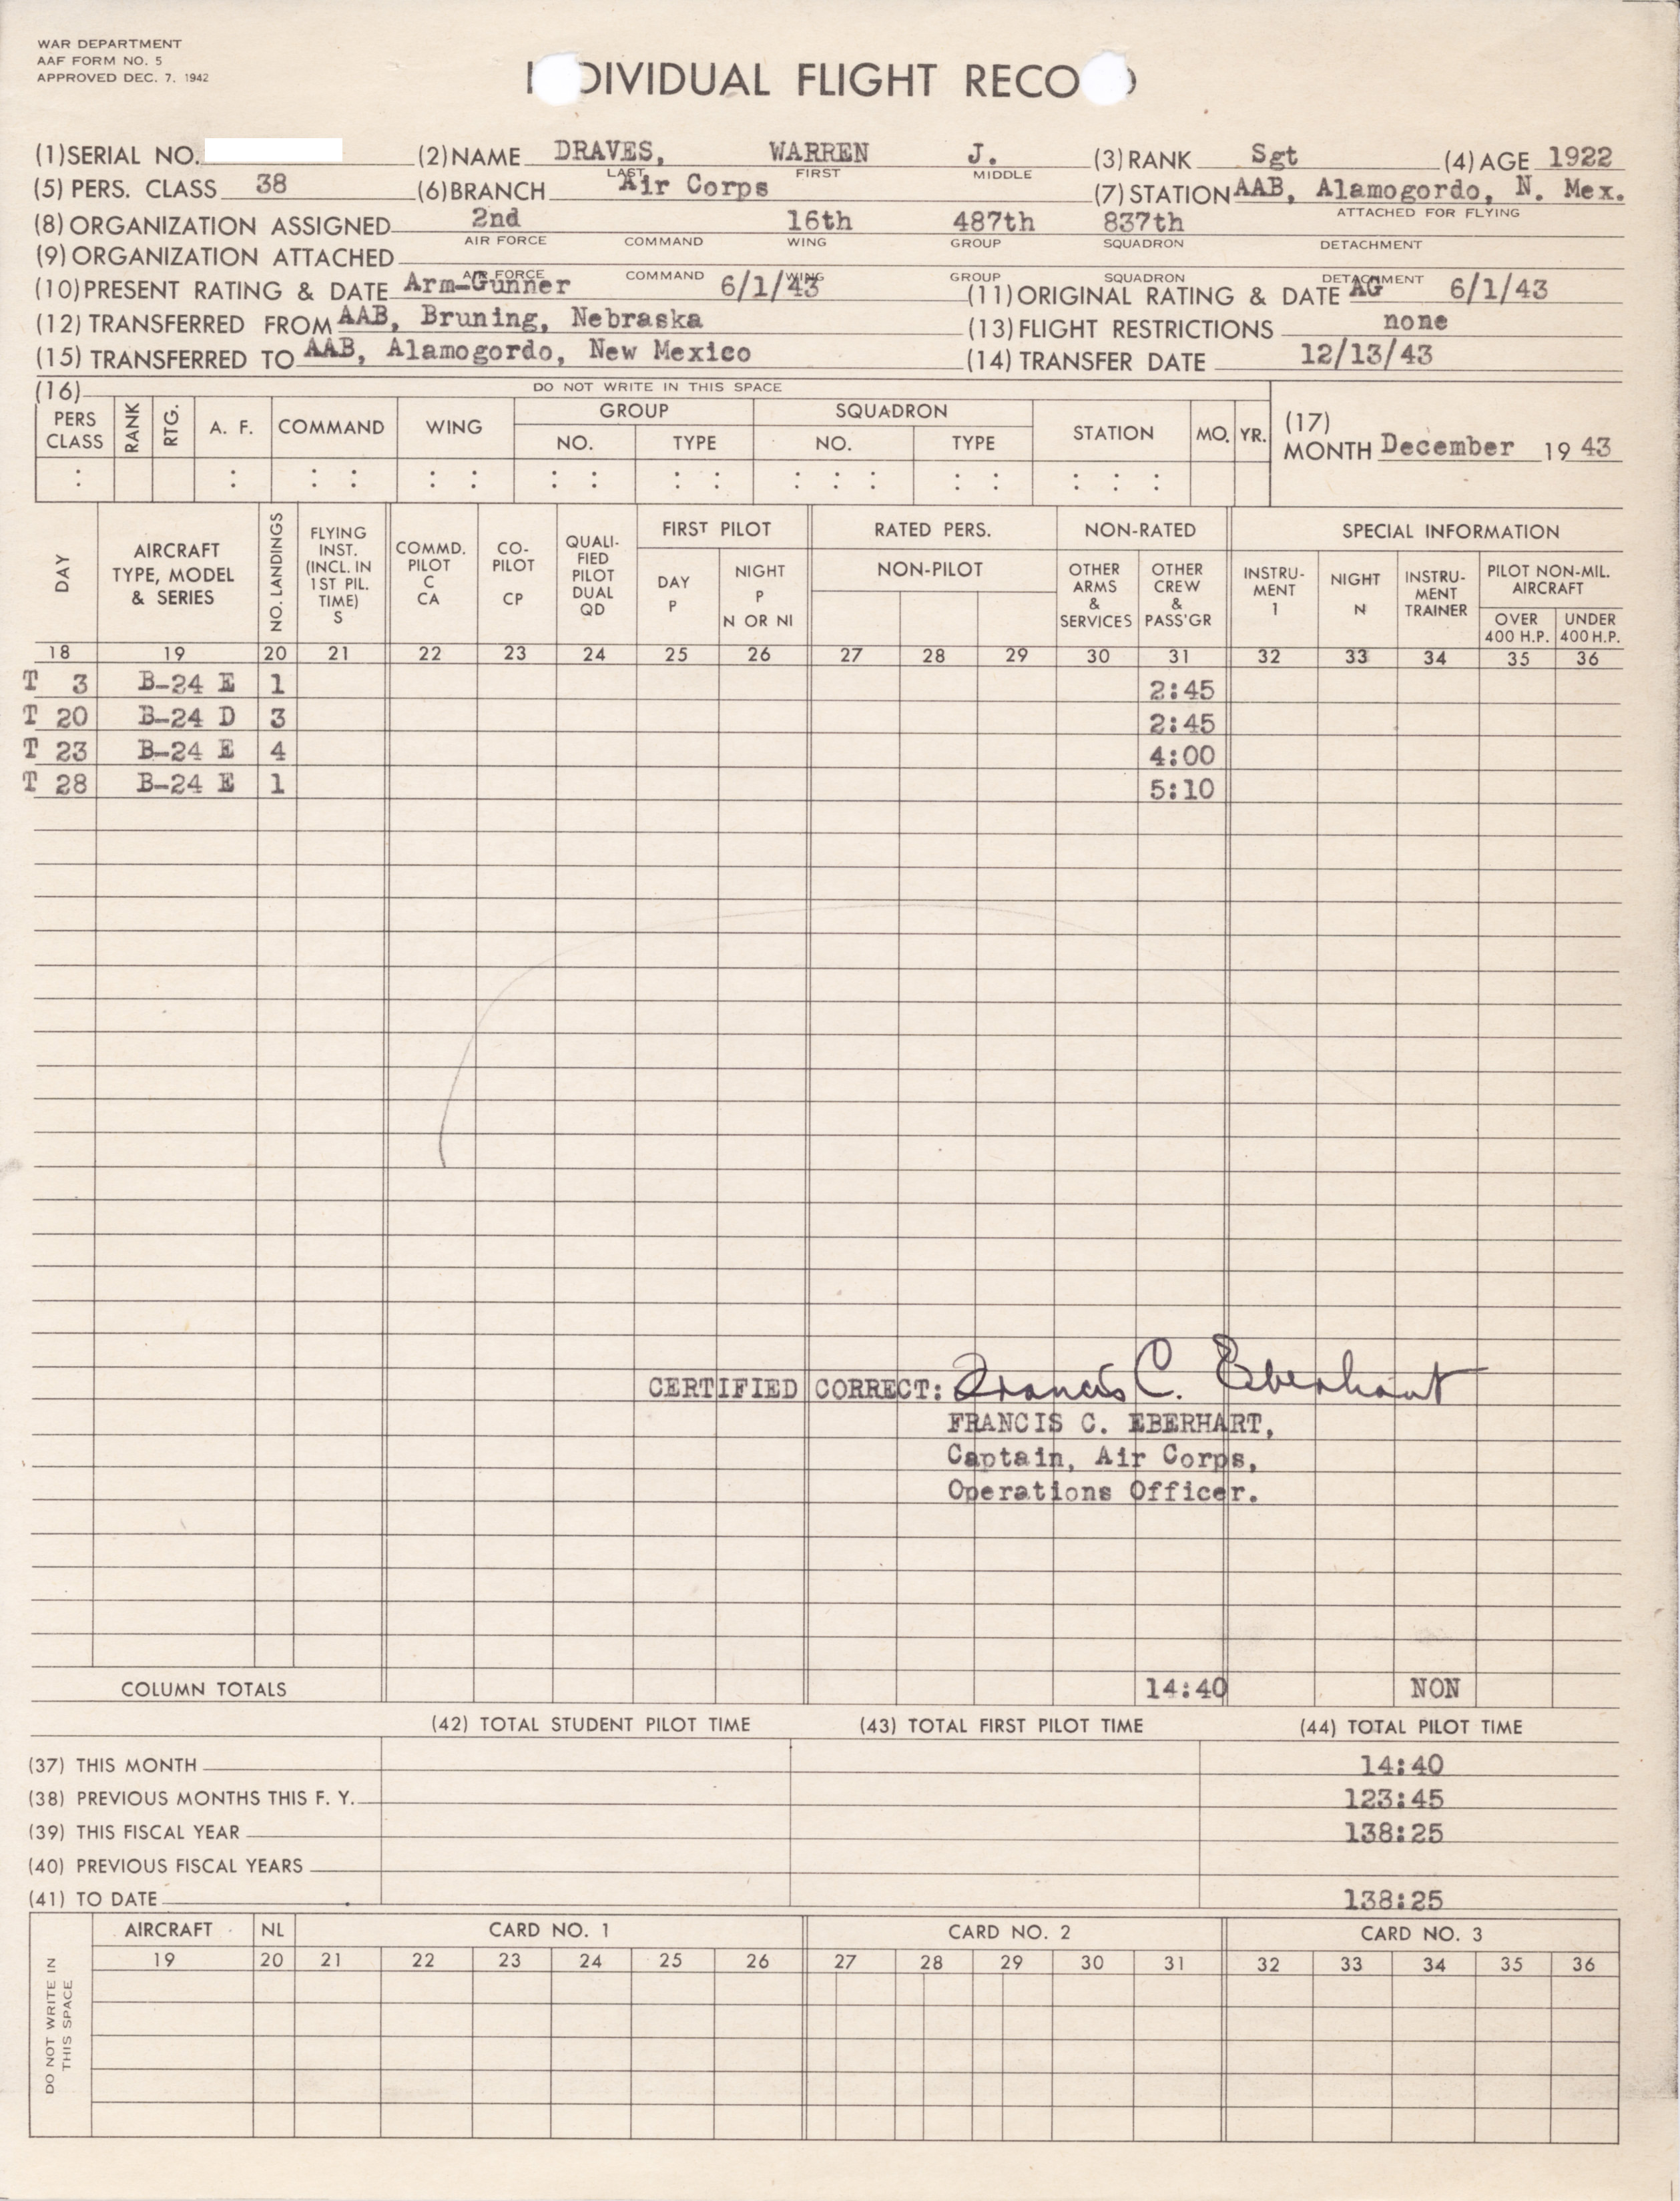 WAR DEPARTMENT
AAF FORM NO. 5
APPROVED DEC. 7, 1942
INDIVIDUAL FLIGHT RECORD
(1) SERIAL NO. (2) NAME DRAVES, WARREN J. (3) RANK Sgt (4) AGE 1922
LAST FIRST MIDDLE
(5) PERS. CLASS 38 (6) BRANCH Air Corps (7) STATION AAB, Alamogordo, N. Mex.
ATTACHED FOR FLYING
(8) ORGANIZATION ASSIGNED 2nd 16th 487th 837th
AIR FORCE COMMAND WING GROUP SQUADRON DETACHMENT
(9) ORGANIZATION ATTACHED
AIR FORCE COMMAND WING GROUP SQUADRON DETACHMENT
(10) PRESENT RATING & DATE Arm-Gunner 6/1/43 (11) ORIGINAL RATING & DATE AG 6/1/43
(12) TRANSFERRED FROM AAB, Bruning, Nebraska (13) FLIGHT RESTRICTIONS none
(15) TRANSFERRED TO AAB, Alamogordo, New Mexico (14) TRANSFER DATE 12/13/43
(16) DO NOT WRITE IN THIS SPACE
PERS CLASS RANK RTG. A. F. COMMAND WING GROUP NO. TYPE SQUADRON NO. TYPE STATION MO. YR.
(17) MONTH December 19 43
DAY AIRCRAFT TYPE, MODEL & SERIES NO. LANDINGS FLYING INST. (INCL. IN 1ST PIL. TIME) S COMMD. PILOT C CA CO-PILOT CP QUALI-FIED PILOT DUAL QD FIRST PILOT DAY P NIGHT P N OR NI RATED PERS. NON-PILOT NON-RATED OTHER ARMS & SERVICES OTHER CREW & PASS'GR SPECIAL INFORMATION INSTRU-MENT I NIGHT N INSTRU-MENT TRAINER PILOT NON-MIL. AIRCRAFT OVER 400 H.P. UNDER 400 H.P.
18 19 20 21 22 23 24 25 26 27 28 29 30 31 32 33 34 35 36
T 3 B-24 E 1 2:45
T 20 B-24 D 3 2:45
T 23 B-24 E 4 4:00
T 28 B-24 E 1 5:10
CERTIFIED CORRECT: Francis C. Eberhart
FRANCIS C. EBERHART,
Captain, Air Corps,
Operations Officer.
COLUMN TOTALS 14:40 NON
(42) TOTAL STUDENT PILOT TIME (43) TOTAL FIRST PILOT TIME (44) TOTAL PILOT TIME
(37) THIS MONTH 14:40
(38) PREVIOUS MONTHS THIS F. Y. 123:45
(39) THIS FISCAL YEAR 138:25
(40) PREVIOUS FISCAL YEARS
(41) TO DATE 138:25
DO NOT WRITE IN THIS SPACE
AIRCRAFT NL CARD NO. 1 CARD NO. 2 CARD NO. 3
19 20 21 22 23 24 25 26 27 28 29 30 31 32 33 34 35 36